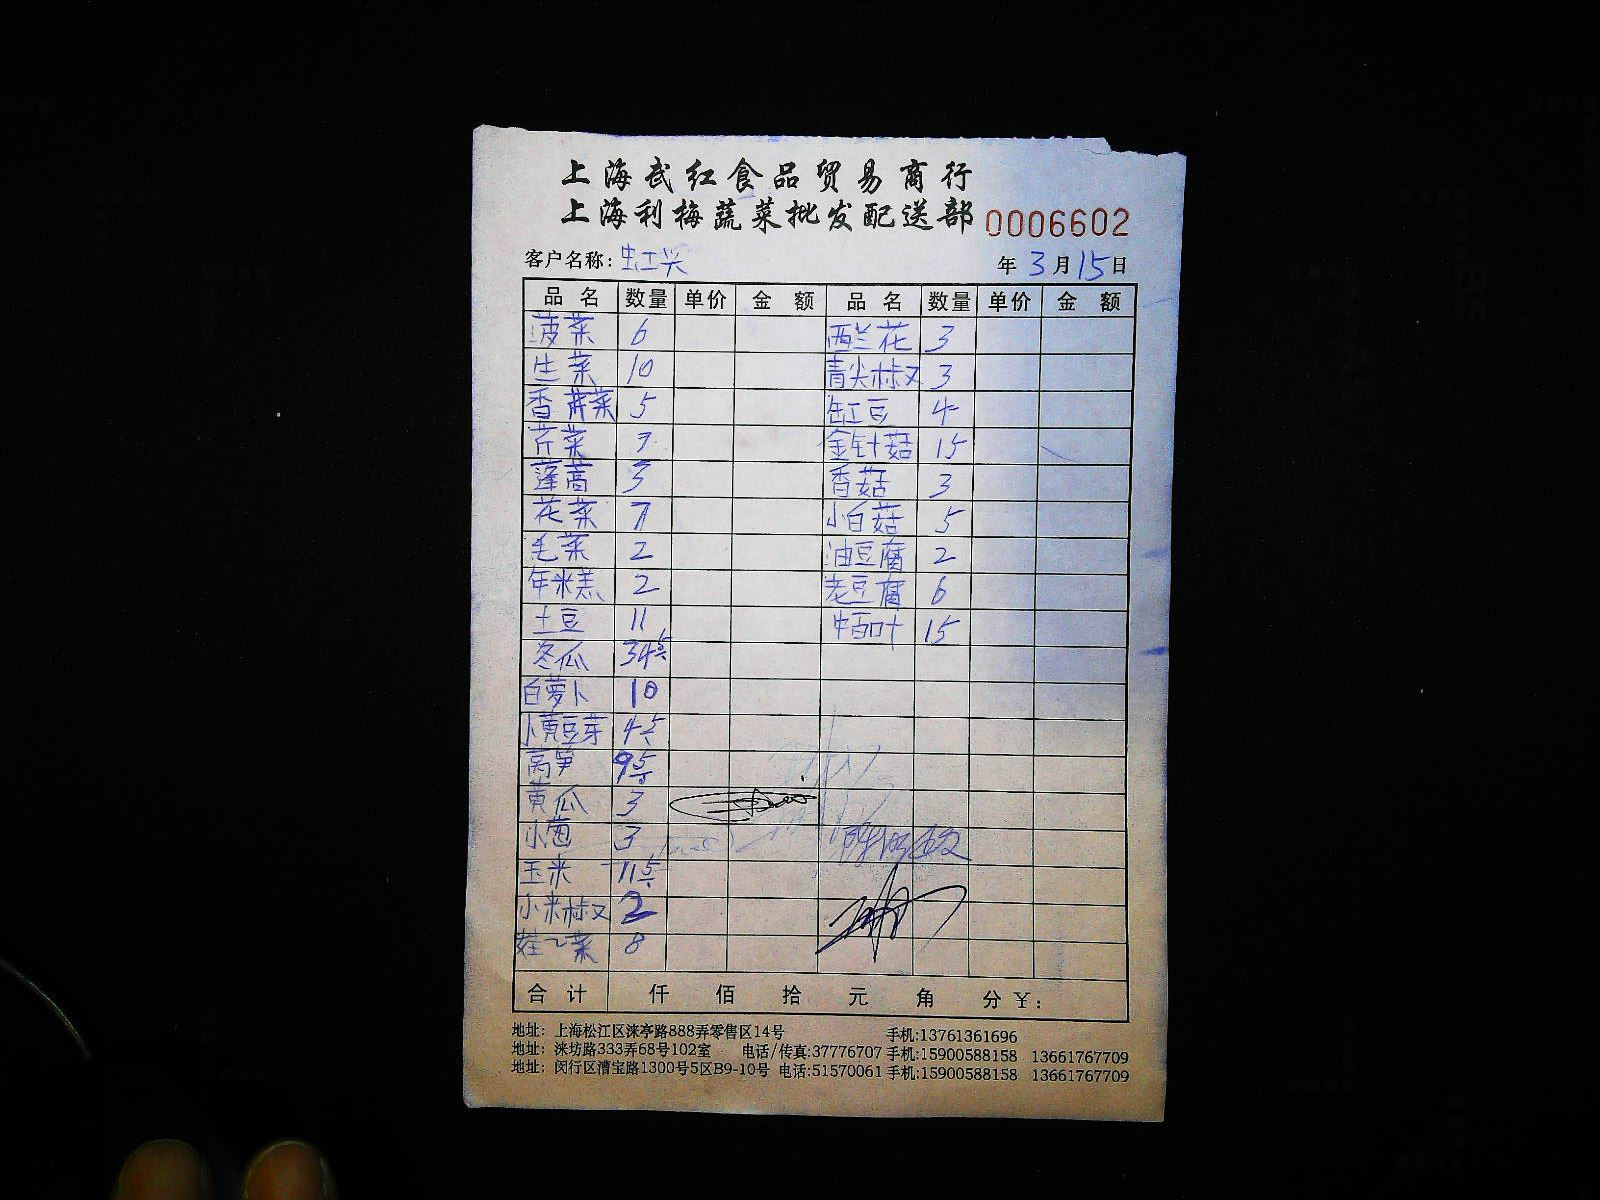 上海武红食品贸易商行
上海利梅蔬菜批发配送部 0006602
客户名称: 虹兴 年 3 月 15 日
品名 数量 单价 金额 品名 数量 单价 金额
菠菜 6 西兰花 3
生菜 10 青尖椒 3
香荠菜 5 缸豆 4
芹菜 7 金针菇 15
蓬蒿 3 香菇 3
花菜 7 小白菇 5
毛菜 2 油豆腐 2
年米糕 2 老豆腐 6
土豆 11 中百叶 15
冬瓜 34
白萝卜 10
黄豆芽 4
莴笋 9
黄瓜 3
小葱 3
玉米 11
小米椒 2
娃菜 8
合计 仟 佰 拾 元 角 分 ¥:
地址: 上海松江区涞亭路888弄零售区14号 手机:13761361696
地址: 涞坊路333弄68号102室 电话/传真:37776707 手机:15900588158 13661767709
地址: 闵行区漕宝路1300号5区B9-10号 电话:51570061 手机:15900588158 13661767709